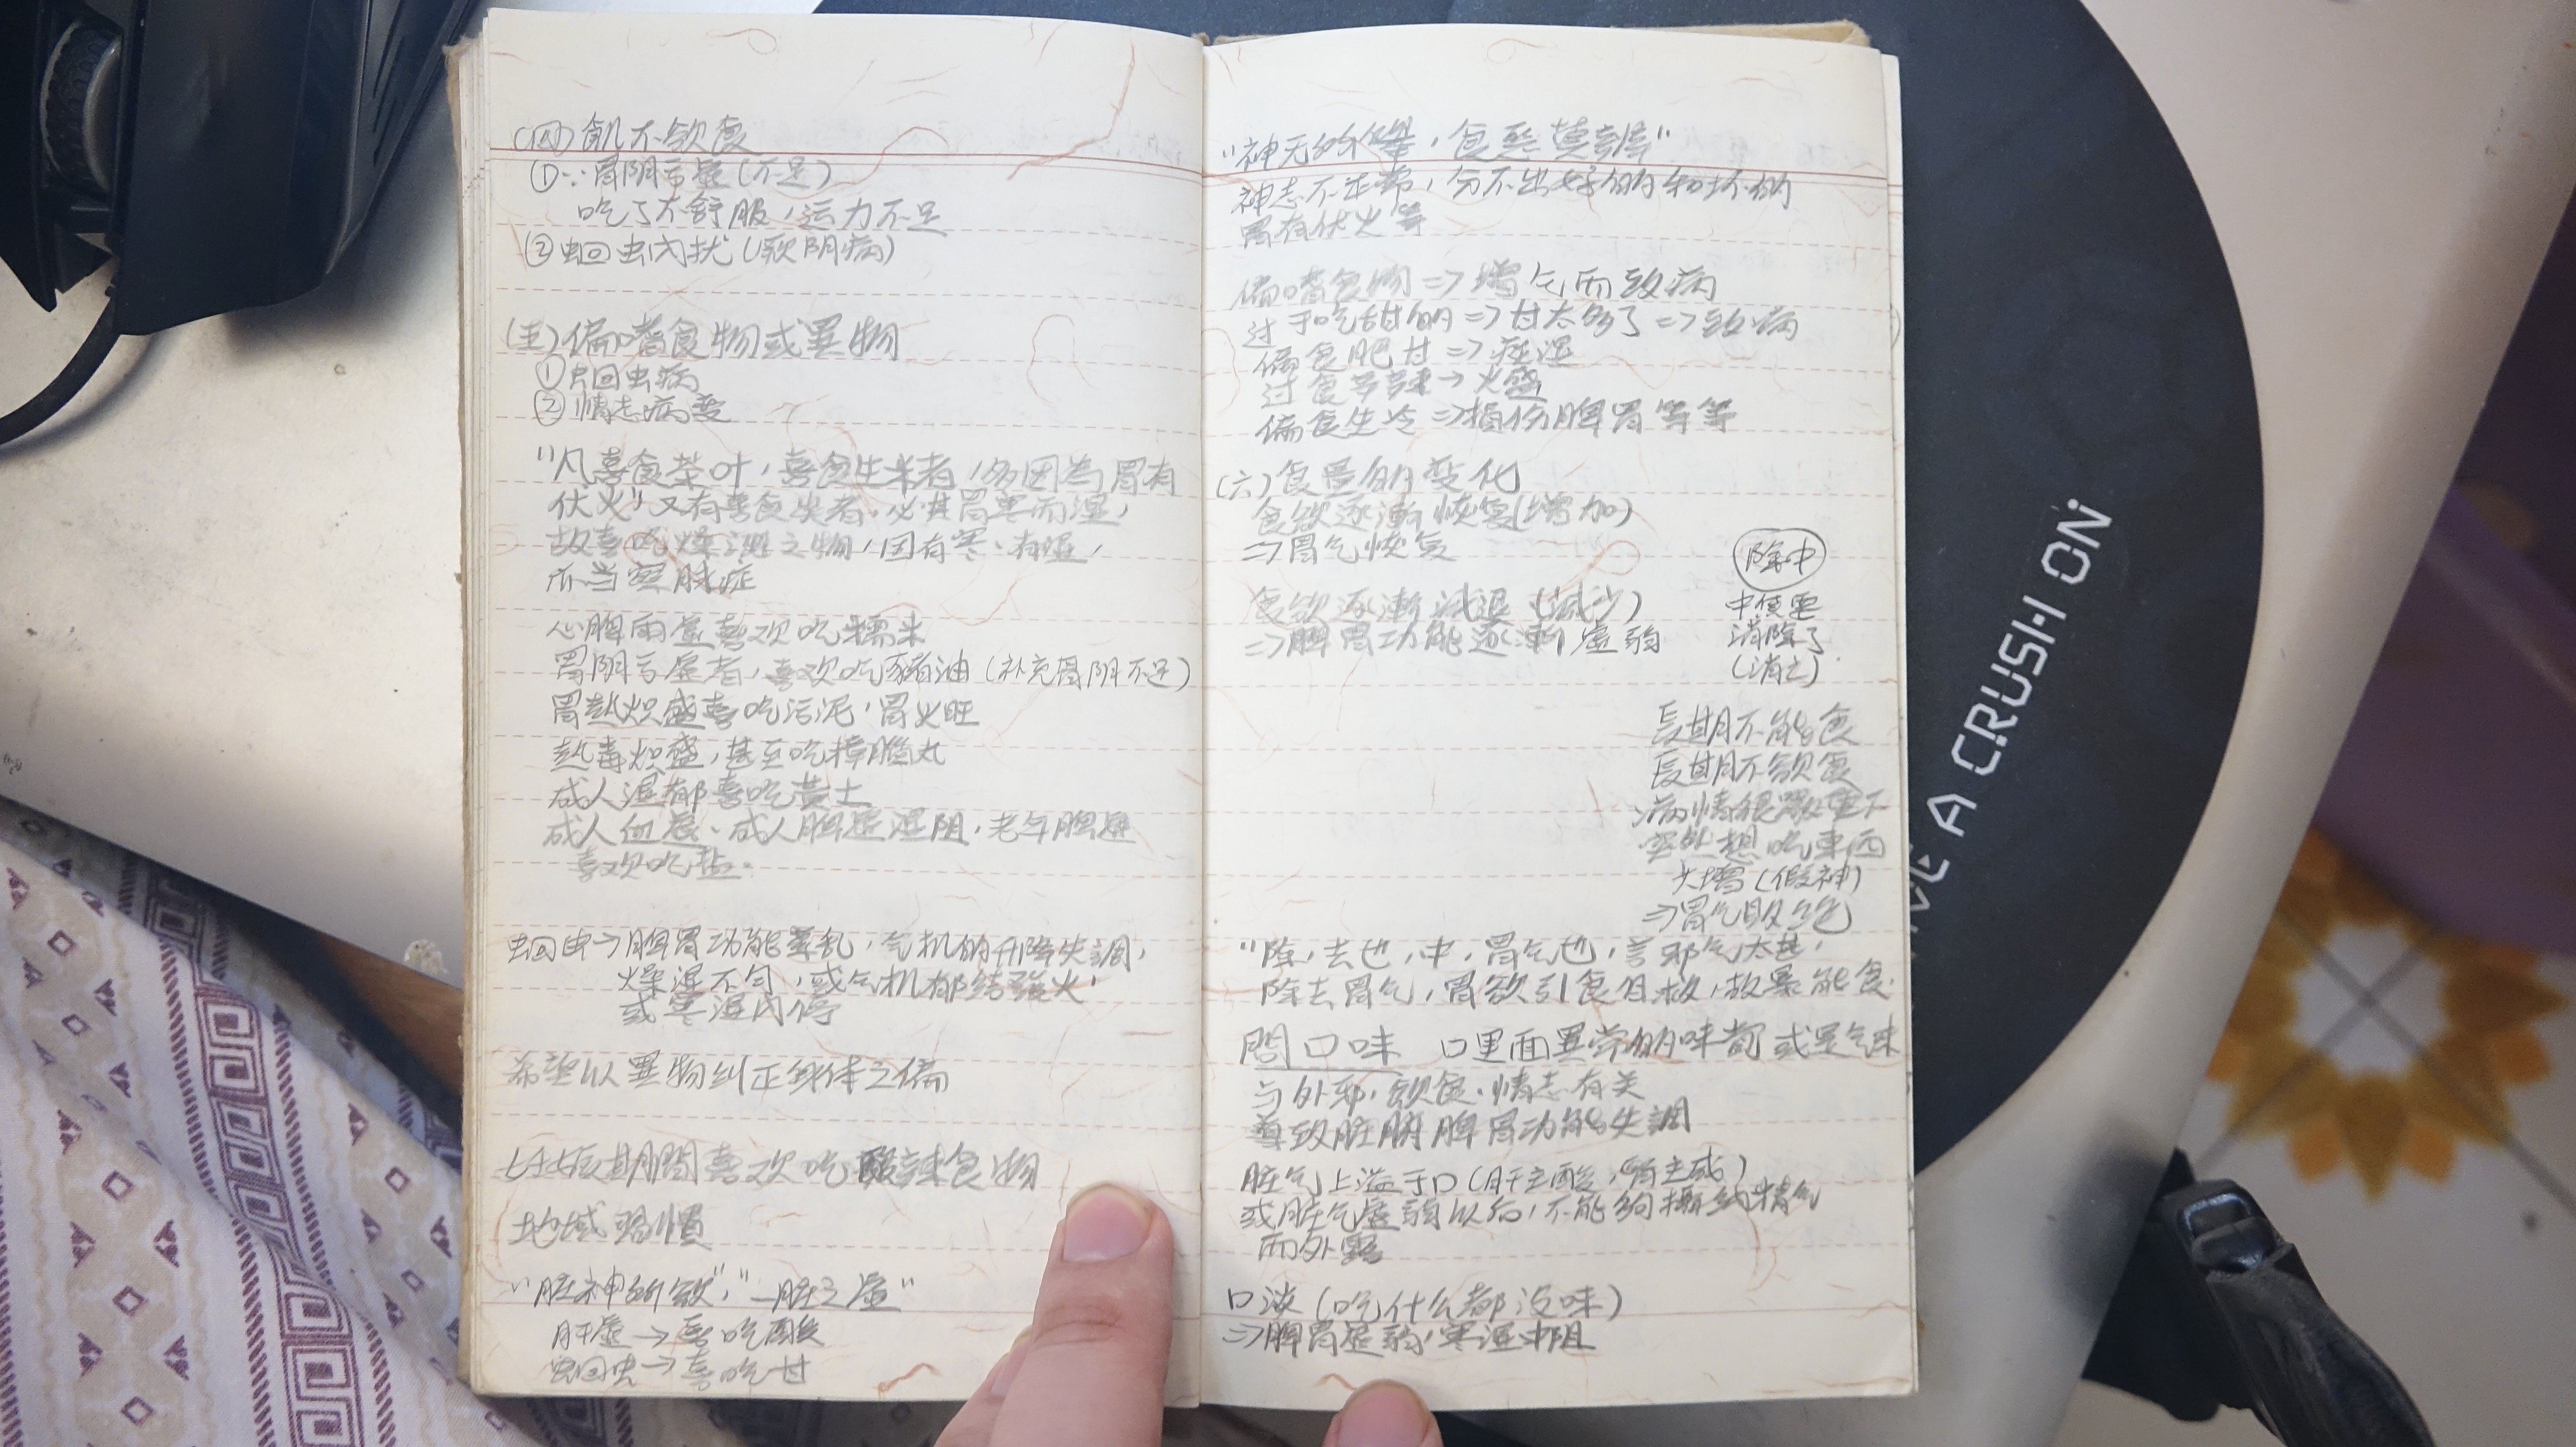 (四) 飢不欲食
①∵胃阴亏虚(不足)
吃了不舒服，运力不足
②蛔虫内扰(厥阴病)
(五)偏嗜食物或異物
①蛔虫病
②情志病变
"凡喜食茶叶，喜食生米者，多因為胃有
伏火"又有喜食炭者，必其胃寒而湿，
故喜吃燥涩之物，固有寒、有湿，
亦当察脉症
心脾兩虚喜欢吃糯米
胃阴亏虚者，喜欢吃豬油(补充胃阴不足)
胃热炽盛喜吃污泥，胃火旺
热毒炽盛，甚至吃樟腦丸
成人湿郁喜吃黄土
成人血虚、成人脾虚湿阻，老年脾虚
喜欢吃盐。
蛔虫→脾胃功能紊乱，气机的升降失調，
燥湿不匀，或气机郁结強火，
或寒湿内停
希望以異物纠正身体之偏
妊娠期間喜欢吃酸辣食物
地域習慣
"脏神所欲"，"一脏之虚"
肝虚→喜吃酸
蛔虫→喜吃甘
"神无的舍，食惡莫辨"
神志不正常，分不出好的和坏的
胃有伏火等
偏嗜食物⇒增气而致病
过于吃甜的⇒甘太多了⇒致病
偏食肥甘⇒痰湿
过食辛辣→火盛
偏食生冷⇒損伤脾胃等等
(六)食量的变化
食欲逐漸恢复(增加)
⇒胃气恢复
食欲逐漸減退(減少)
⇒脾胃功能逐漸虚弱
除中
中值要
消除了
(消亡)
長期不能食
長期不欲食
∴病情很嚴重下
突然想吃東西
大增(假神)
⇒胃气敗绝
"除，去也，中，胃气也，言邪气太甚，
除去胃气，胃欲引食自救，故暴能食.
問口味 口里面異常的味觉或是气味
与外邪，飲食，情志有关
導致脏腑脾胃功能失調
脏气上溢于口(肝主酸，腎主咸)
或脏气虚弱以后，不能夠攝納精气
而外露
口淡(吃什么都没味)
⇒脾胃虚弱，寒湿中阻
A CRUSH ON